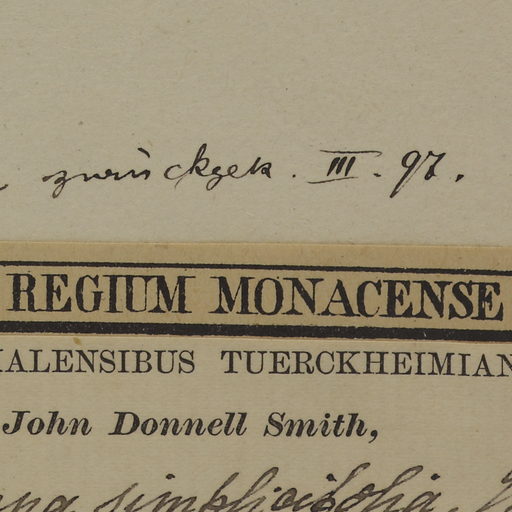 zurückgek. III. 97.
REGIUM MONACENSE
ALENSIBUS TUERCKHEIMIAN
John Donnell Smith,
simplicifolia.